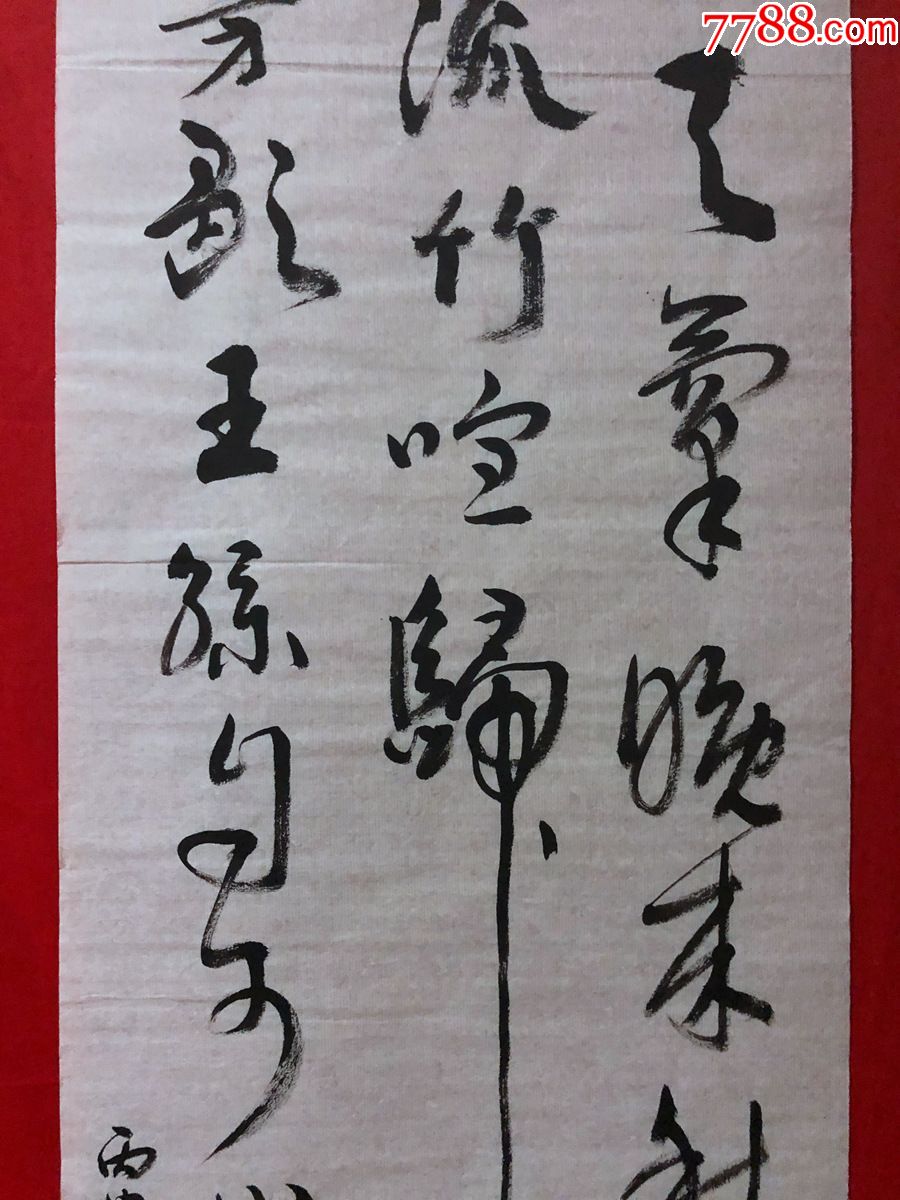 7788.com
天氣晚来秋
流竹喧歸
芳歇王孫自可
丙